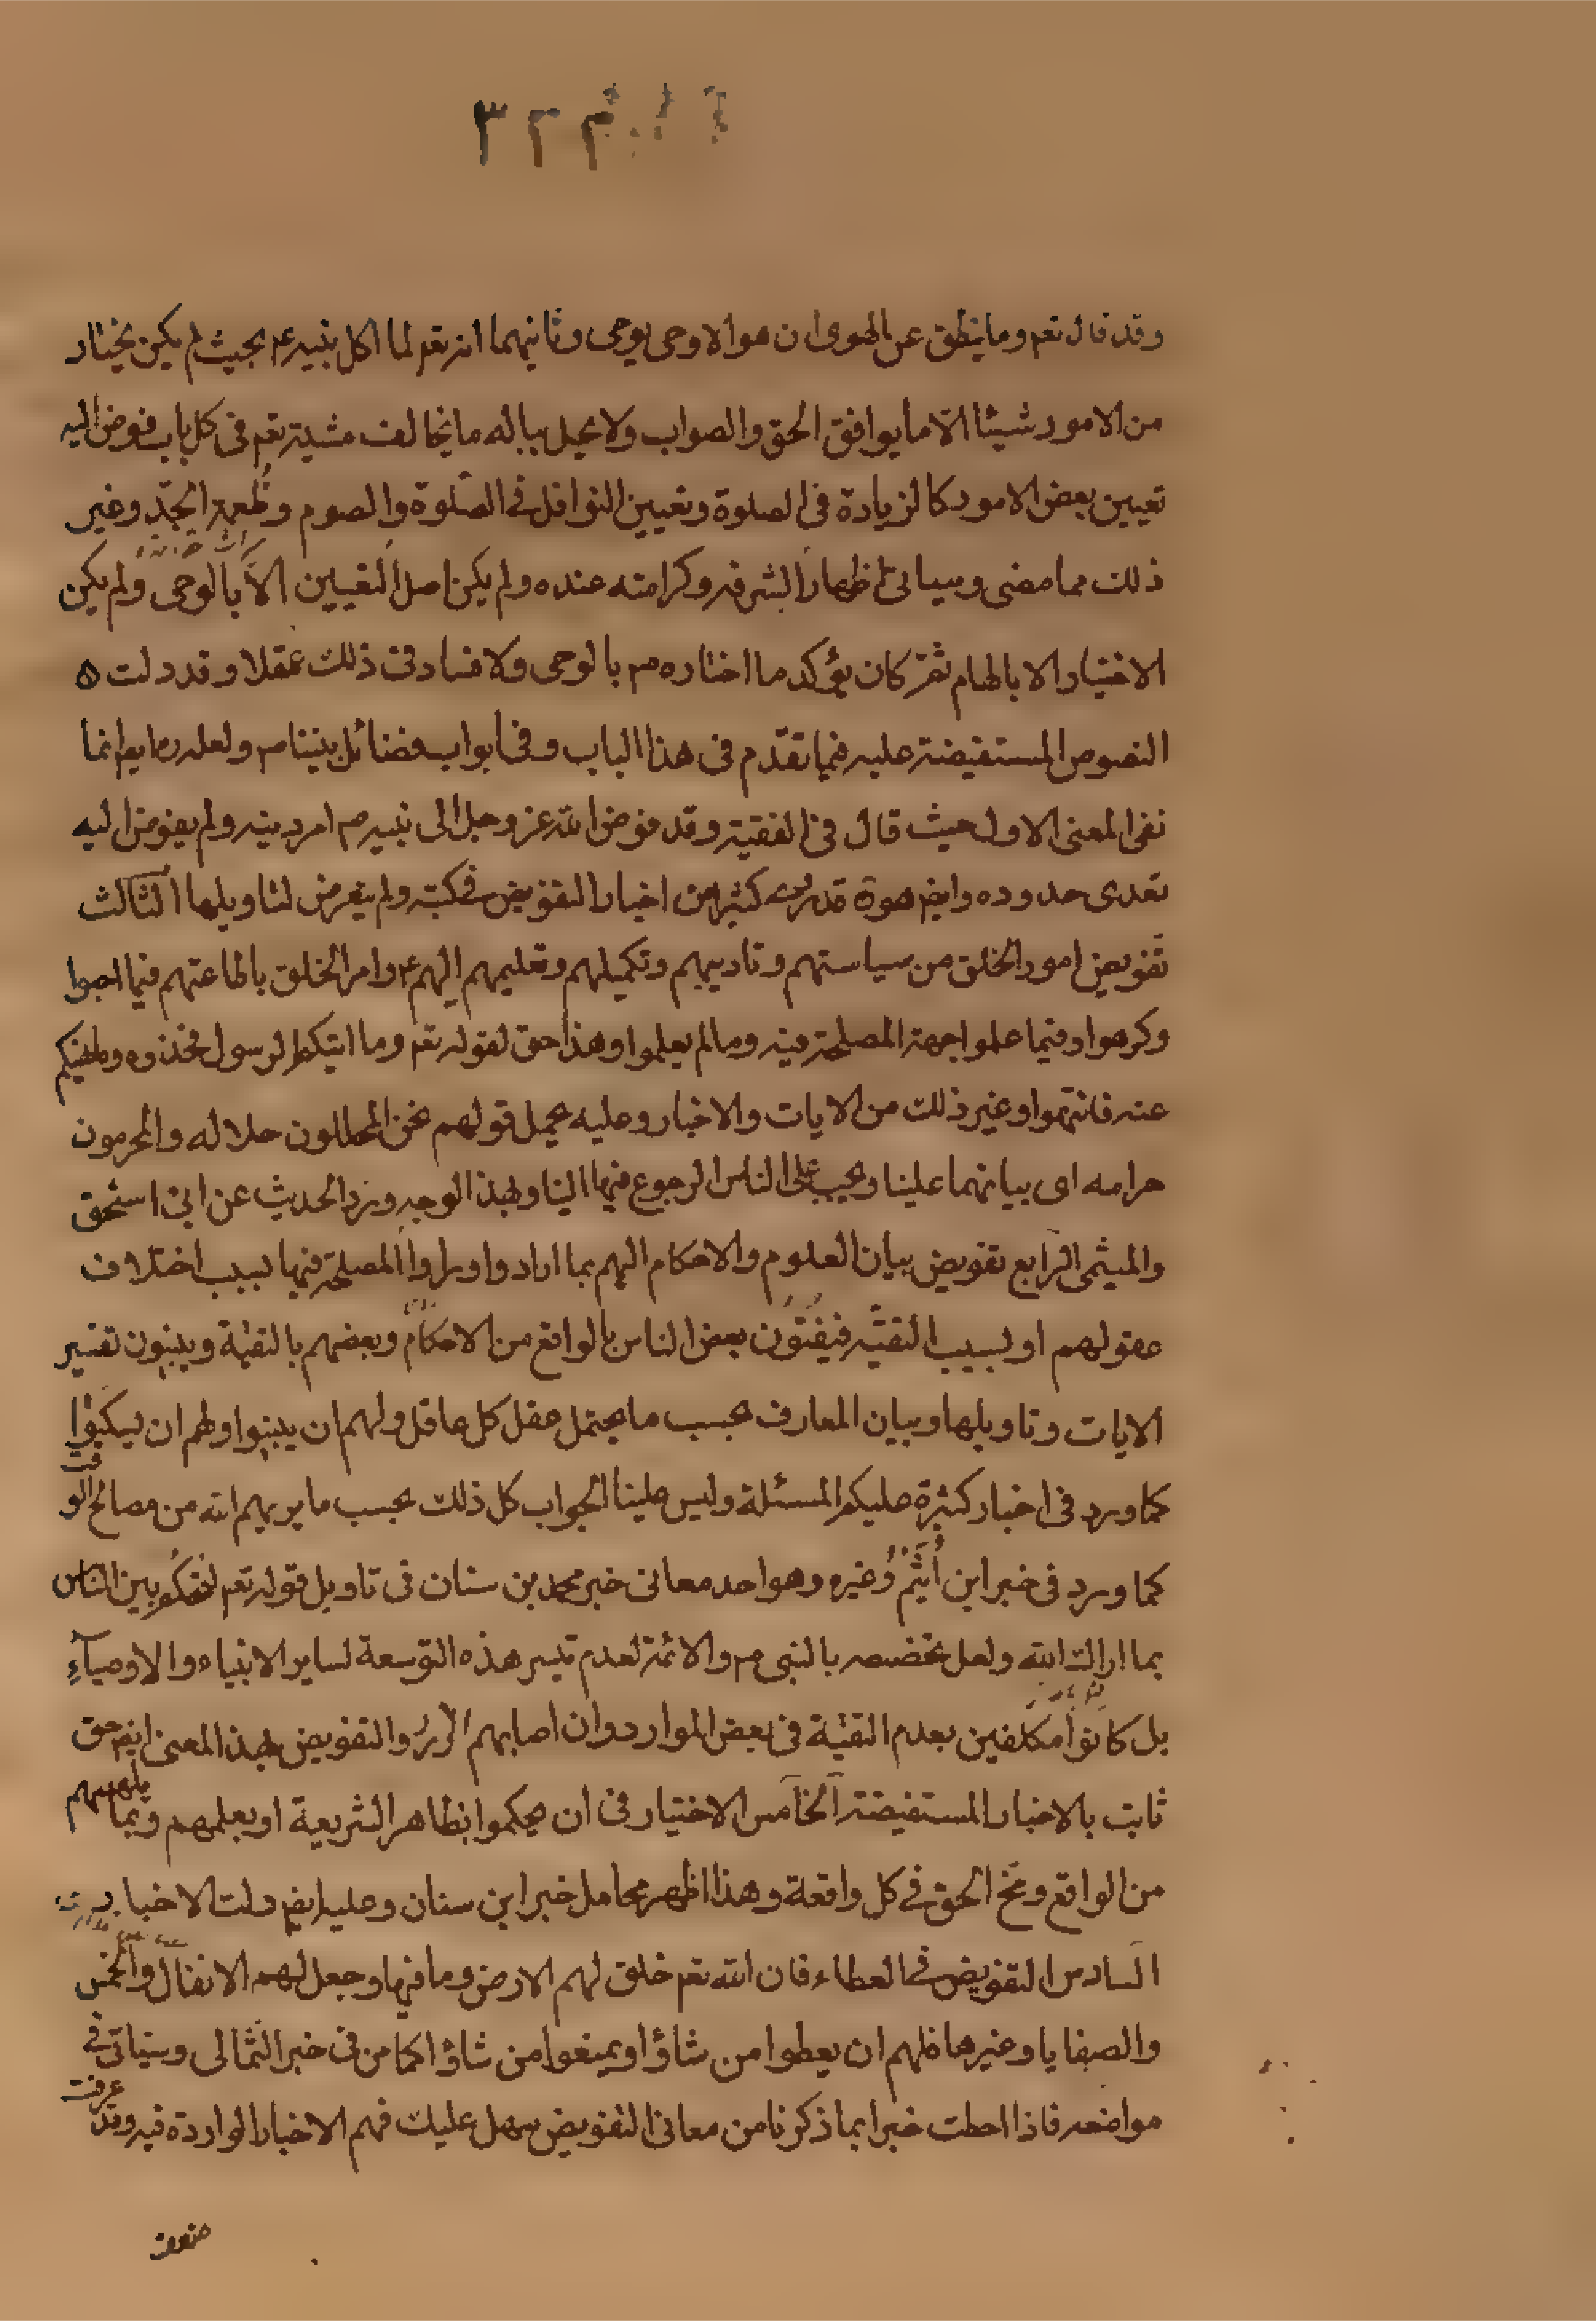 ٣٢٣
وقد قال تعم وما ينطق عن الهوى ان هو الا وحى يوحى وثانيهما انه تعم لما اكمل نبيه ص بحيث لم يكن يختار
من الامور شيئا الا ما يوافق الحق والصواب ولا يحل بباله ما يخالف مشيته تعم فى كل باب فوض اليه
تعيين بعض الامور كالزيادة فى الصلوة وتعيين النوافل فى الصلوة والصوم وطعمة الجد وغير
ذلك مما مضى وسياتى اظهارا لشرفه وكرامته عنده ولم يكن اصل التعيين الا بالوحى ولم يكن
الاختيار الا بالهام ثم كان يؤكد ما اختاره ص بالوحى ولا فساد فى ذلك عقلا وقد دلت ه
النصوص المستفيضة عليه فيما تقدم فى هذا الباب وفى ابواب فضائل نبينا ص ولعله ره ايضا انما
نفى المعنى الاول حيث قال فى الفقيه وقد فوض الله عز وجل الى نبيه ص امر دينه ولم يفوض اليه
تعدى حدوده وايضم هو ره قد روى كثيرا من اخبار التفويض فى كتبه ولم يتعرض لتاويلها الثالث
تفويض امور الخلق من سياستهم وتاديبهم وتكميلهم وتعليمهم اليهم ع وامر الخلق باطاعتهم فيما احبوا
وكرهوا وفيما علموا جهة المصلحة فيه وما لم يعلموا وهذا حق لقوله تعم وما اتيكم الرسول فخذوه وما نهيكم
عنه فانتهوا وغير ذلك من الايات والاخبار وعليه يحمل قولهم نحن المحللون حلاله والمحرمون
حرامه اى بيانهما علينا ويجب على الناس الرجوع فيها الينا وبهذا الوجه ورد الحديث عن ابى اسحق
والميثمى الرابع تفويض بيان العلوم والاحكام اليهم بما ارادوا وراوا المصلحة فيها بسبب اختلاف
عقولهم او بسبب التقية فيفتون بعض الناس بالواقع من الاحكام وبعضهم بالتقية ويبينون تفسير
الايات وتاويلها وبيان المعارف بحسب ما يحتمل عقل كل عاقل ولهم ان يبينوا ولهم ان يسكتوا
كما ورد فى اخبار كثيرة عليكم المسئلة وليس علينا الجواب كل ذلك بحسب ما يريهم الله من مصالح الوقت
كما ورد فى خبر ابن اشيم وغيره وهو احد معانى خبر محمد بن سنان فى تاويل قوله تعم لتحكم بين الناس
بما اراك الله ولعل تخصيصه بالنبى ص والائمة لعدم تيسر هذه التوسعة لساير الانبياء والاوصياء
بل كانوا مكلفين بعدم التقية فى بعض الموارد وان اصابهم الضرر والتفويض بهذا المعنى ايضم حق
ثابت بالاخبار المستفيضة الخامس الاختيار فى ان يحكموا بظاهر الشريعة او بعلمهم وبما يلهمهم
من الواقع ومخ الحق فى كل واقعة وهذا اظهر محامل خبر ابن سنان وعليه ايضم دلت الاخبار
السادس التفويض فى العطاء فان الله تعم خلق لهم الارض وما فيها وجعل لهم الانفال والخمس
والصفايا وغيرها فلهم ان يعطوا من شاؤا ويمنعوا من شاؤا كما مر فى خبر الثمالى وسياتى فى
مواضعه فاذا احطت خبرا بما ذكرنا من معانى التفويض سهل عليك فهم الاخبار الواردة فيه وقد عرفت
ضعف